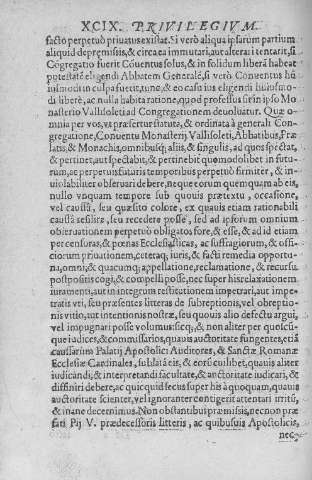 XCIX. PRIVILEGIVM
facto perpetuò priuatus existat. Si verò aliqua ipsarum partium
aliquid de præmissis, & circa ea immutari, aut alterari tentarit, si
Cõgregatio fuerit Cõuentus solus, & in solidum liberā habeat
potestatẽ eligendi Abbatem Generalẽ, si verò Conuentus hu
iusmodi in culpa fuerit, tunc, & eo casu ius eligendi huiusmo-
di liberè, ac nulla habita ratione, quod professus sit in ipso Mo
nasterio Vallisoleti ad Congregationem deuoluatur. Quæ o-
mnia per vos, vt præfertur statuta, & ordinata à generali Con-
gregatione, Conuentu Monasterij Vallisoleti, Abbatibus, Præ
latis, & Monachis, omnibusq; alijs, & singulis, ad quos spectat,
& pertinet, aut spectabit, & pertinebit quomodolibet in futu-
rum, ac perpetuis futuris temporibus perpetuò firmiter, & in-
uiolabiliter obseruari debere, neque eorum quemquam ab eis,
nullo vnquam tempore sub quouis prætextu, occasione,
vel causa, seu quæsito colore, ex quauis etiam rationabili
causa resilire, seu recedere posse, sed ad ipsorum omnium
obseruationem perpetuò obligatos fore, & esse, & ad id etiam
per censuras, & pœnas Ecclesiasticas, ac suffragiorum, & offi-
ciorum priuationem, cæteraq; iuris, & facti remedia opportu-
na, omni, & quacumq; appellatione, reclamatione, & recursu
postpositis cogi, & compelli posse, nec super his relaxationem
iuramenti, aut in integrum restitutionem impetrari, aut impe-
tratis vti, seu præsentes litteras de subreptionis, vel obreptio-
nis vitio, aut intentionis nostræ, seu quouis alio defectu argui,
vel impugnari posse volumus: sicq;, & non aliter per quoscũ-
que iudices, & commissarios, quauis auctoritate fungentes, etiã
causarum Palatij Apostolici Auditores, & Sanctæ Romanæ
Ecclesiæ Cardinales, sublata eis, & eorũ cuilibet, quauis aliter
iudicandi, & interpretandi facultate, & auctoritate iudicari, &
diffiniri debere, ac quicquid secus super his à quoquam, quauis
auctoritate scienter, vel ignoranter contigerit attentari irritũ,
& inane decernimus. Non obstantibus præmissis, necnon præ
fati Pij V. prædecessoris litteris, ac quibusuis Apostolicis,
nec